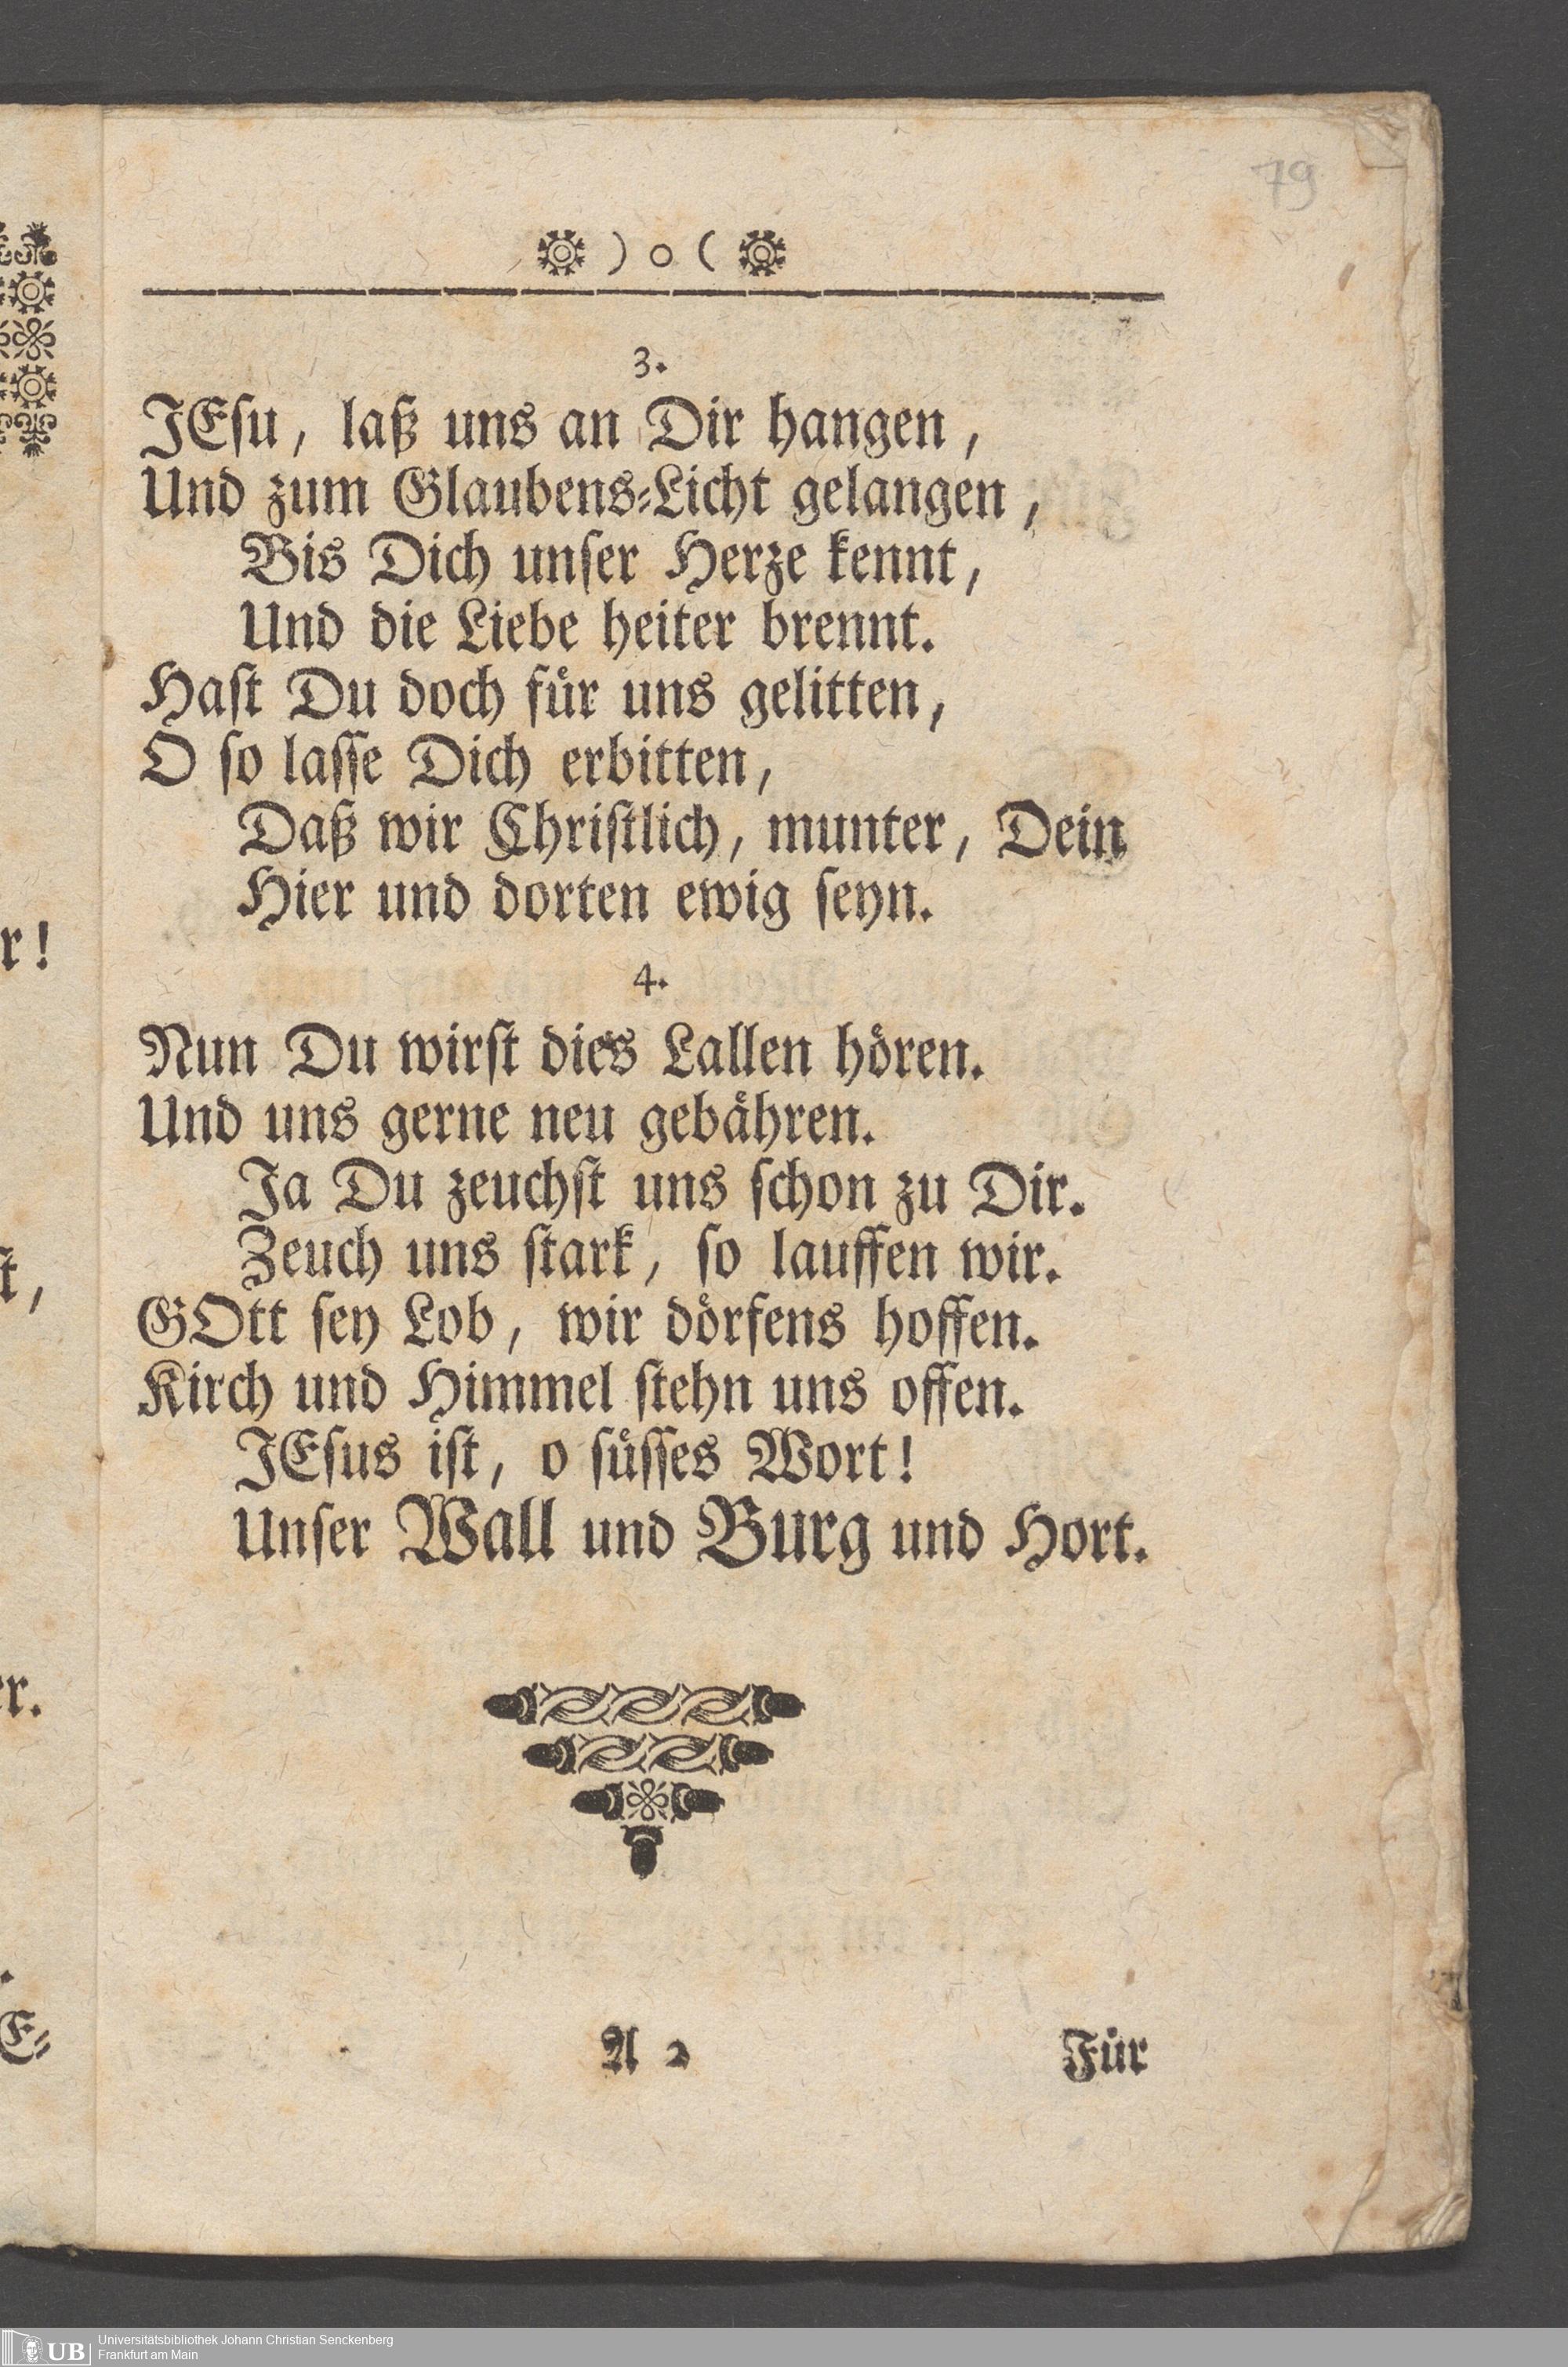 79
) o (
3.
JEſu, laß uns an Dir hangen,
Und zum Glaubens⸗Licht gelangen,
Bis Dich unſer Herze kennt,
Und die Liebe heiter brennt.
Haſt Du doch fuͤr uns gelitten,
O ſo laſſe Dich erbitten,
Daß wir Chriſtlich, munter, Dein
Hier und dorten ewig ſeyn.
4.
Nun Du wirſt dies Lallen hoͤren.
Und uns gerne neu gebaͤhren.
Ja Du zeuchſt uns ſchon zu Dir.
Zeuch uns ſtark, ſo lauffen wir.
GOtt ſey Lob, wir doͤrfens hoffen.
Kirch und Himmel ſtehn uns offen.
JEſus iſt, o ſuͤſſes Wort!
Unſer Wall und Burg und Hort.
A 2
Fuͤr
r!
ſt,
er.
E⸗
UB
Universitätsbibliothek Johann Christian Senckenberg
Frankfurt am Main